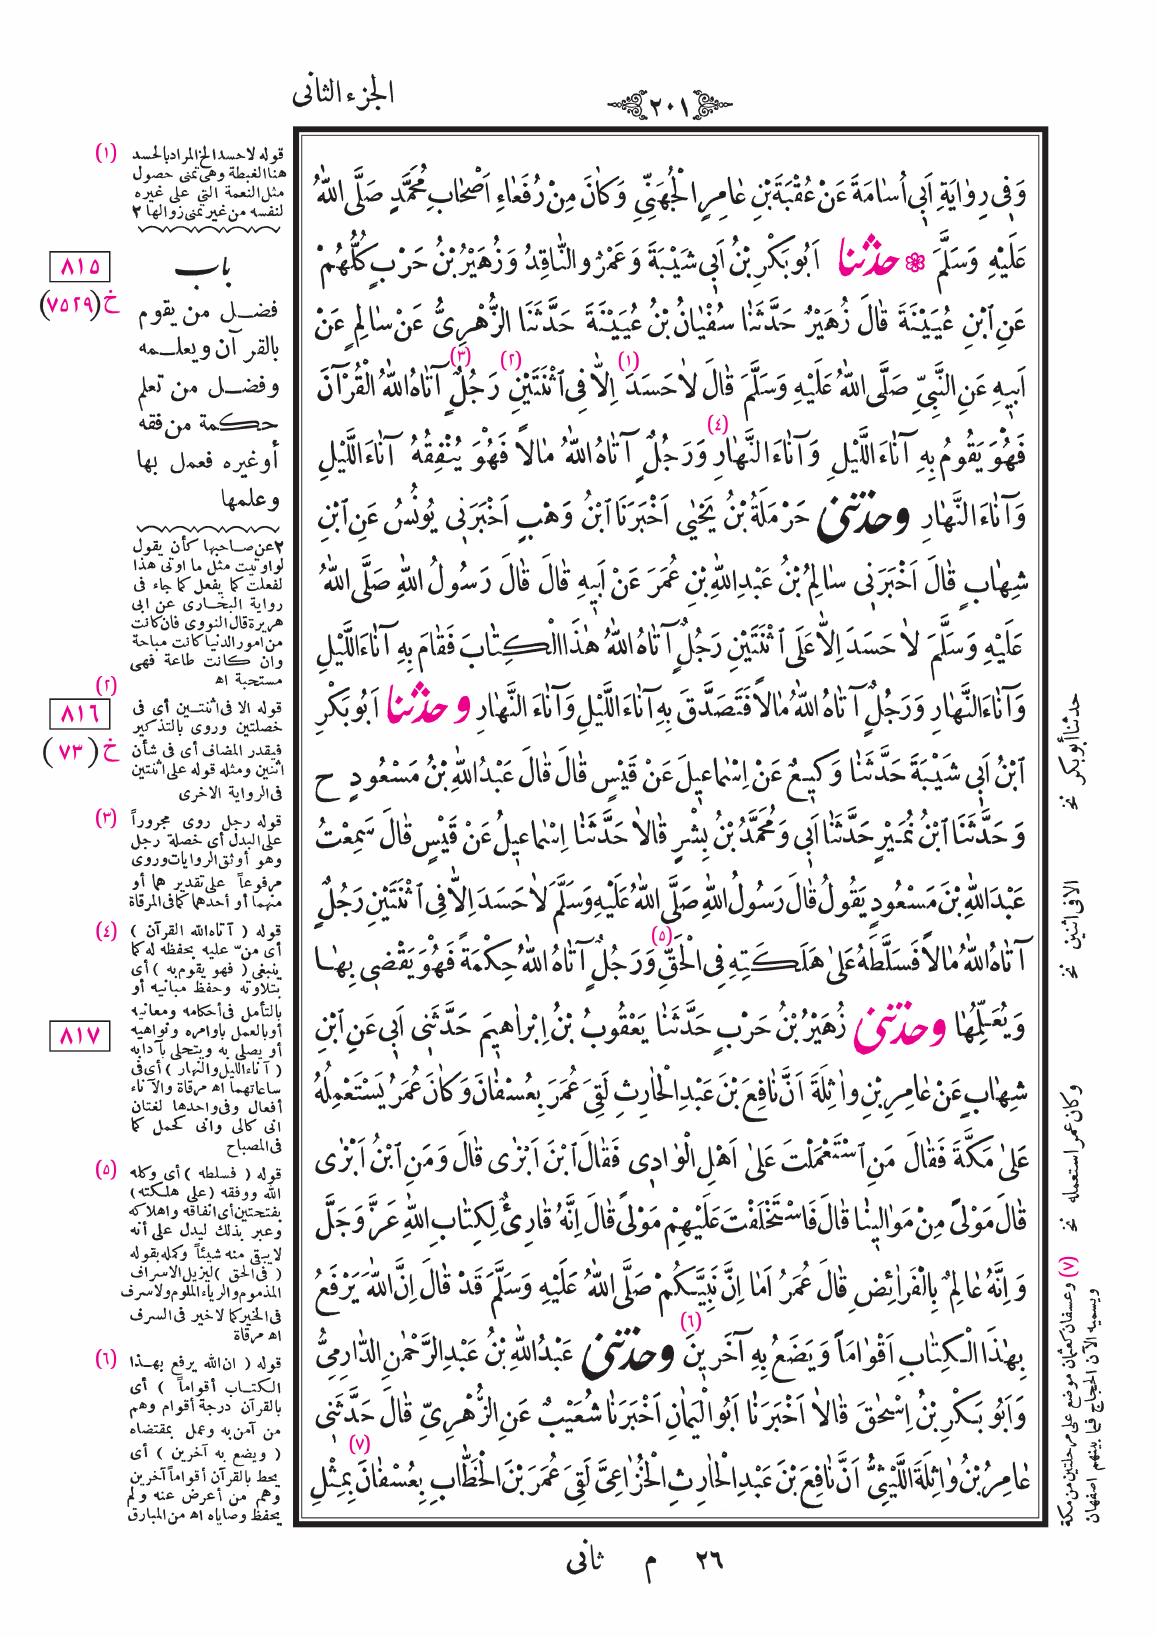 الجزء الثانى
٢٠١
وَفِي رِوَايَةِ اَبِي اُسَامَةَ عَنْ عُقْبَةَ بْنِ عَامِرٍ الْجُهَنِيِّ وَكَانَ مِنْ رُفَعَاءِ اَصْحَابِ مُحَمَّدٍ صَلَّى اللهُ
عَلَيْهِ وَسَلَّمَ ❁ حدثنا اَبُو بَكْرِ بْنُ اَبِي شَيْبَةَ وَعَمْرٌو النَّاقِدُ وَزُهَيْرُ بْنُ حَرْبٍ كُلُّهُمْ
عَنِ ابْنِ عُيَيْنَةَ قَالَ زُهَيْرٌ حَدَّثَنَا سُفْيَانُ بْنُ عُيَيْنَةَ حَدَّثَنَا الزُّهْرِيُّ عَنْ سَالِمٍ عَنْ
اَبِيهِ عَنِ النَّبِيِّ صَلَّى اللهُ عَلَيْهِ وَسَلَّمَ قَالَ لاَ حَسَدَ (١) اِلاَّ فِي اثْنَتَيْنِ (٢) رَجُلٌ (٣) آتَاهُ اللهُ الْقُرْآنَ
فَهُوَ يَقُومُ بِهِ آنَاءَ اللَّيْلِ وَآنَاءَ النَّهَارِ (٤) وَرَجُلٌ آتَاهُ اللهُ مَالاً فَهُوَ يُنْفِقُهُ آنَاءَ اللَّيْلِ
وَآنَاءَ النَّهَارِ وحدثنى حَرْمَلَةُ بْنُ يَحْيٰى اَخْبَرَنَا ابْنُ وَهْبٍ اَخْبَرَنِي يُونُسُ عَنِ ابْنِ
شِهَابٍ قَالَ اَخْبَرَنِي سَالِمُ بْنُ عَبْدِ اللهِ بْنِ عُمَرَ عَنْ اَبِيهِ قَالَ قَالَ رَسُولُ اللهِ صَلَّى اللهُ
عَلَيْهِ وَسَلَّمَ لاَ حَسَدَ اِلاَّ عَلَى اثْنَتَيْنِ رَجُلٌ آتَاهُ اللهُ هٰذَا الْكِتَابَ فَقَامَ بِهِ آنَاءَ اللَّيْلِ
وَآنَاءَ النَّهَارِ وَرَجُلٌ آتَاهُ اللهُ مَالاً فَتَصَدَّقَ بِهِ آنَاءَ اللَّيْلِ وَآنَاءَ النَّهَارِ و حدثنا اَبُو بَكْرِ
ابْنُ اَبِي شَيْبَةَ حَدَّثَنَا وَكِيعٌ عَنْ اِسْمَاعِيلَ عَنْ قَيْسٍ قَالَ قَالَ عَبْدُ اللهِ بْنُ مَسْعُودٍ ح
وَحَدَّثَنَا ابْنُ نُمَيْرٍ حَدَّثَنَا اَبِي وَمُحَمَّدُ بْنُ بِشْرٍ قَالاَ حَدَّثَنَا اِسْمَاعِيلُ عَنْ قَيْسٍ قَالَ سَمِعْتُ
عَبْدَ اللهِ بْنَ مَسْعُودٍ يَقُولُ قَالَ رَسُولُ اللهِ صَلَّى اللهُ عَلَيْهِ وَسَلَّمَ لاَ حَسَدَ اِلاَّ فِي اثْنَتَيْنِ رَجُلٌ
آتَاهُ اللهُ مَالاً فَسَلَّطَهُ عَلىٰ هَلَكَتِهِ فِي الْحَقِّ (٥) وَرَجُلٌ آتَاهُ اللهُ حِكْمَةً فَهُوَ يَقْضِي بِهَا
وَيُعَلِّمُهَا وحدثنى زُهَيْرُ بْنُ حَرْبٍ حَدَّثَنَا يَعْقُوبُ بْنُ اِبْرَاهِيمَ حَدَّثَنِي اَبِي عَنِ ابْنِ
شِهَابٍ عَنْ عَامِرِ بْنِ وَاثِلَةَ اَنَّ نَافِعَ بْنَ عَبْدِ الْحَارِثِ لَقِيَ عُمَرَ بِعُسْفَانَ وَكَانَ عُمَرُ يَسْتَعْمِلُهُ
عَلىٰ مَكَّةَ فَقَالَ مَنِ اسْتَعْمَلْتَ عَلىٰ اَهْلِ الْوَادِي فَقَالَ ابْنَ اَبْزٰى قَالَ وَمَنِ ابْنُ اَبْزٰى
قَالَ مَوْلىً مِنْ مَوَالِينَا قَالَ فَاسْتَخْلَفْتَ عَلَيْهِمْ مَوْلىً قَالَ اِنَّهُ قَارِئٌ لِكِتَابِ اللهِ عَزَّ وَجَلَّ
وَاِنَّهُ عَالِمٌ بِالْفَرَائِضِ قَالَ عُمَرُ اَمَا اِنَّ نَبِيَّكُمْ صَلَّى اللهُ عَلَيْهِ وَسَلَّمَ قَدْ قَالَ اِنَّ اللهَ يَرْفَعُ
بِهٰذَا الْكِتَابِ اَقْوَاماً وَيَضَعُ بِهِ آخَرِينَ (٦) وحدثنى عَبْدُ اللهِ بْنُ عَبْدِ الرَّحْمٰنِ الدَّارِمِيُّ
وَاَبُو بَكْرِ بْنُ اِسْحٰقَ قَالاَ اَخْبَرَنَا اَبُو الْيَمَانِ اَخْبَرَنَا شُعَيْبٌ عَنِ الزُّهْرِيِّ قَالَ حَدَّثَنِي
عَامِرُ بْنُ وَاثِلَةَ اللَّيْثِيُّ اَنَّ نَافِعَ بْنَ عَبْدِ الْحَارِثِ الْخُزَاعِيَّ لَقِيَ عُمَرَ بْنَ الْخَطَّابِ بِعُسْفَانَ (٧) بِمِثْلِ
(١) قوله لاحسد الخ المراد بالحسد
هنا الغبطة وهى تمنى حصول
مثل النعمة التي على غيره
لنفسه من غير تمنى زوالها ٢
٨١٥
خ (٧٥٢٩)
باب
فضل من يقوم
بالقرآن ويعلمه
وفضل من تعلم
حكمة من فقه
أو غيره فعمل بها
وعلمها
٢ عن صاحبها كأن يقول
لو اوتيت مثل ما اوتى هذا
لفعلت كما يفعل كما جاء فى
رواية البخارى عن ابى
هريرة قال النووى فان كانت
من امور الدنيا كانت مباحة
وان كانت طاعة فهى
مستحبة اه
(٢)
٨١٦
خ (٧٣)
قوله الا فى اثنتين أى فى
خصلتين وروى بالتذكير
فيقدر المضاف أى فى شأن
اثنين ومثله قوله على اثنتين
فى الرواية الاخرى
(٣) قوله رجل روى مجروراً
على البدل أى خصلة رجل
وهو أوثق الروايات وروى
مرفوعاً على تقدير هما أو
منهما أو أحدهما كما فى المرقاة
(٤) قوله ( آتاه الله القرآن )
أى منّ عليه بحفظه له كما
ينبغى ( فهو يقوم به ) أى
بتلاوته وحفظ مبانيه أو
بالتأمل فى أحكامه ومعانيه
أو بالعمل بأوامره ونواهيه
أو يصلى به ويتحلى بآدابه
( آناء الليل والنهار ) أى فى
ساعاتهما اه مرقاة والآناء
أفعال وفى واحدها لغتان
انى كالى وانى كحمل كما
فى المصباح
٨١٧
(٥) قوله ( فسلطه ) أى وكله
الله ووفقه (على هلكته)
بفتحتين أى انفاقه واهلاكه
وعبر بذلك ليدل على أنه
لا يبقى منه شيئاً وكمله بقوله
( فى الحق ) ليزيل الاسراف
المذموم والرياء الملوم ولا سرف
فى الخير كما لا خير فى السرف
اه مرقاة
(٦) قوله ( ان الله يرفع بهذا
الكتاب أقواماً ) أى
بالقرآن درجة أقوام وهم
من آمن به وعمل بمقتضاه
( ويضع به آخرين ) أى
يحط بالقرآن أقواماً آخرين
وهم من أعرض عنه ولم
يحفظ وصاياه اه من المبارق
حدثنا أبو بكر نخ
الا فى اثنين نخ
وكان عمر استعمله نخ
(٧) وعسفان كعثمان موضع على مرحلتين من مكة
ويسميه الآن الحجاج فيما بينهم اصفهان
٢٦ م ثانى